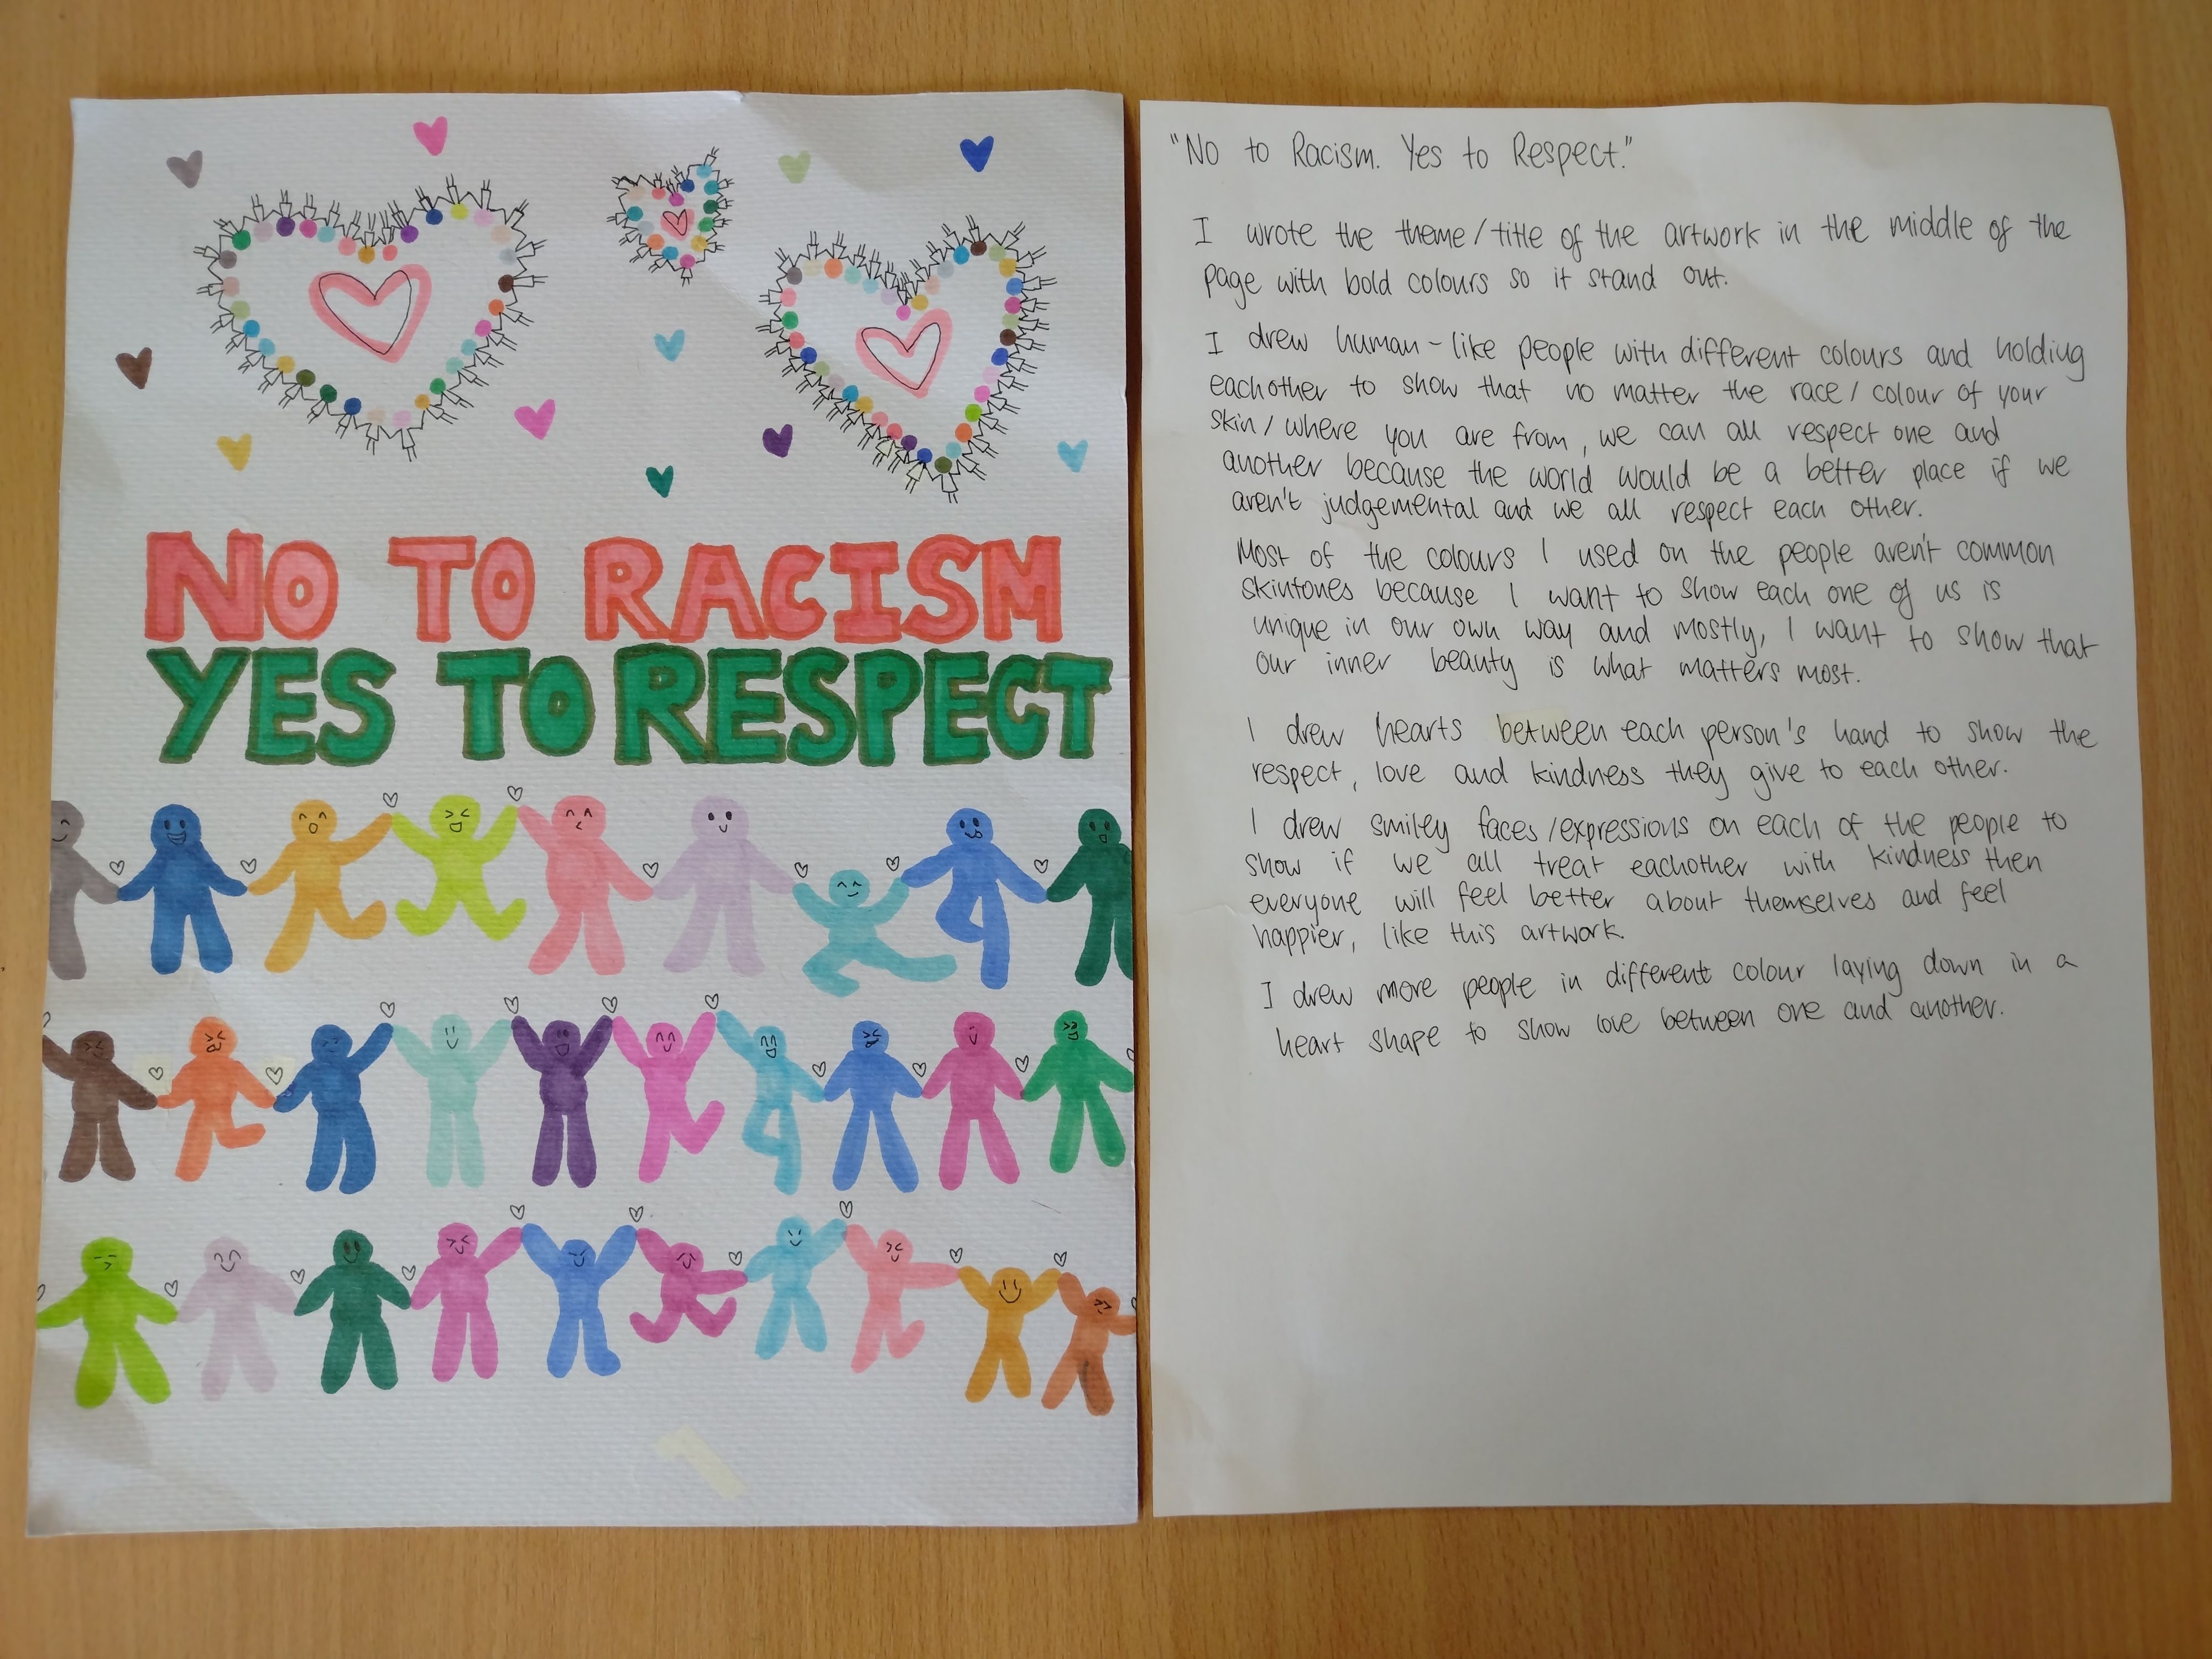 NO TO RACISM
YES TO RESPECT
"No to Racism. Yes to Respect."
I wrote the theme/title of the artwork in the middle of the
page with bold colours so it stand out.
I drew human-like people with different colours and holding
eachother to show that no matter the race/colour of your
skin/where you are from, we can all respect one and
another because the world would be a better place if we
aren't judgemental and we all respect each other.
Most of the colours I used on the people aren't common
skintones because I want to show each one of us is
unique in our own way and mostly, I want to show that
our inner beauty is what matters most.
I drew hearts between each person's hand to show the
respect, love and kindness they give to each other.
I drew smiley faces/expressions on each of the people to
show if we all treat eachother with kindness then
everyone will feel better about themselves and feel
happier, like this artwork.
I drew more people in different colour laying down in a
heart shape to show love between one and another.